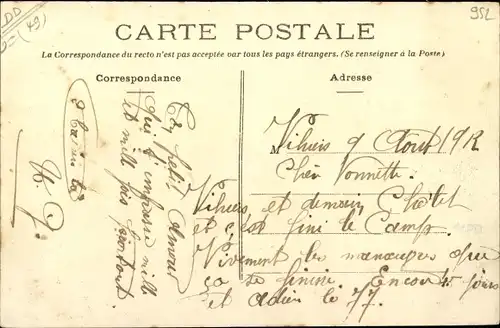 952
(49)
CARTE POSTALE
La Correspondance du recto n'est pas acceptée par tous les pays étrangers. (Se renseigner à la Poste)
Correspondance
Adresse
M
Vihiers 9 Aout 1912
Chère Yonnette.
Vihiers, et demain, Chôlet
et c'est fini le Camp.
Vivement les manœuvres que
ça se finisse. Encore 45 jours
et adieu le 77.
Ton petit Amour
qui t'embrasse mille
et mille fois
partout